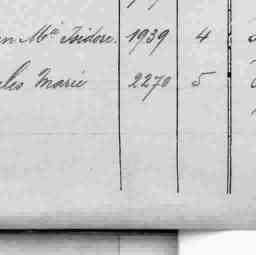 n Mia Isidore. 1939 4
les Marie 2270 5